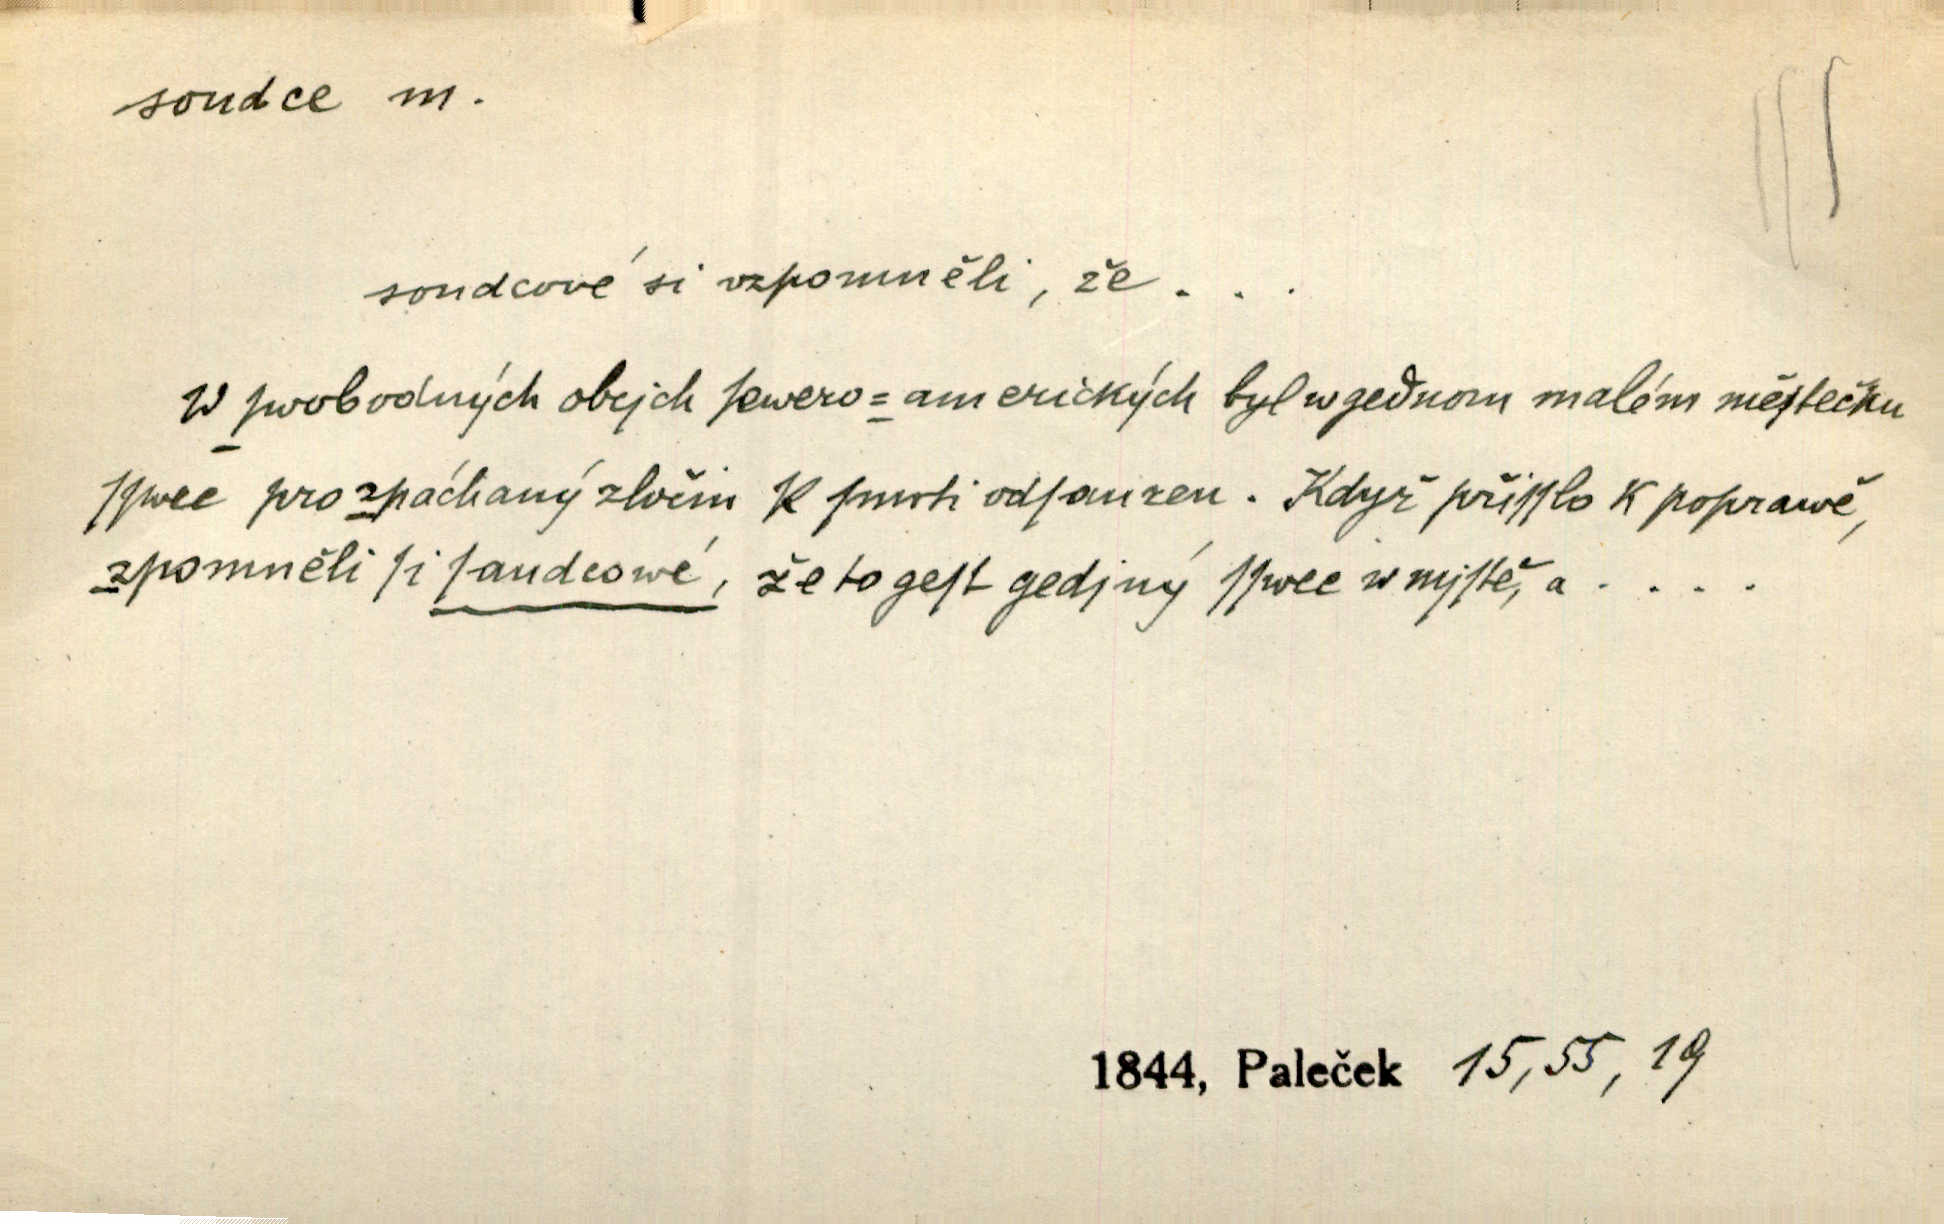 soudce m.
soudcové si vzpomněli, že . . .
W ſwobodných obcjch ſewero=amerických byl w gednom malém měſtečku
ſſwec pro zpáchaný zločin k ſmrti odſauzen. Když přiſſlo k poprawě,
zpomněli ſi ſaudcowé, že to geſt gedjný ſſwec w mjſtě, a . . . .
1844, Paleček 15, 55, 19